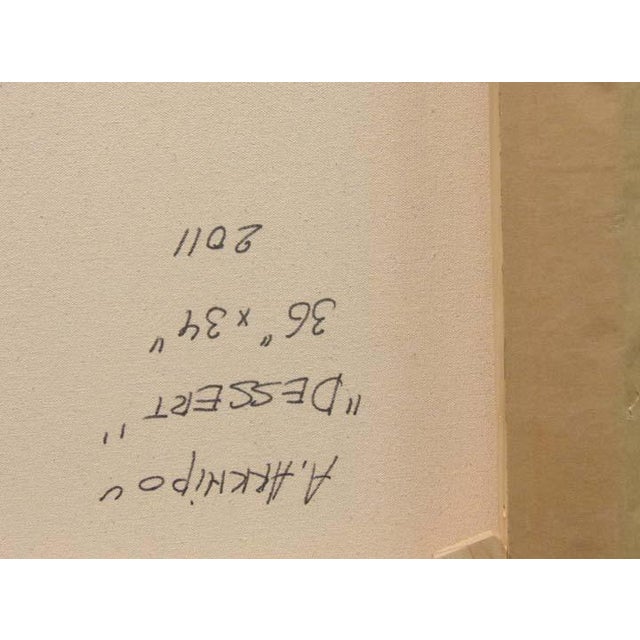 A. ARKHIPOV
"DESSERT"
36" x 34"
2011